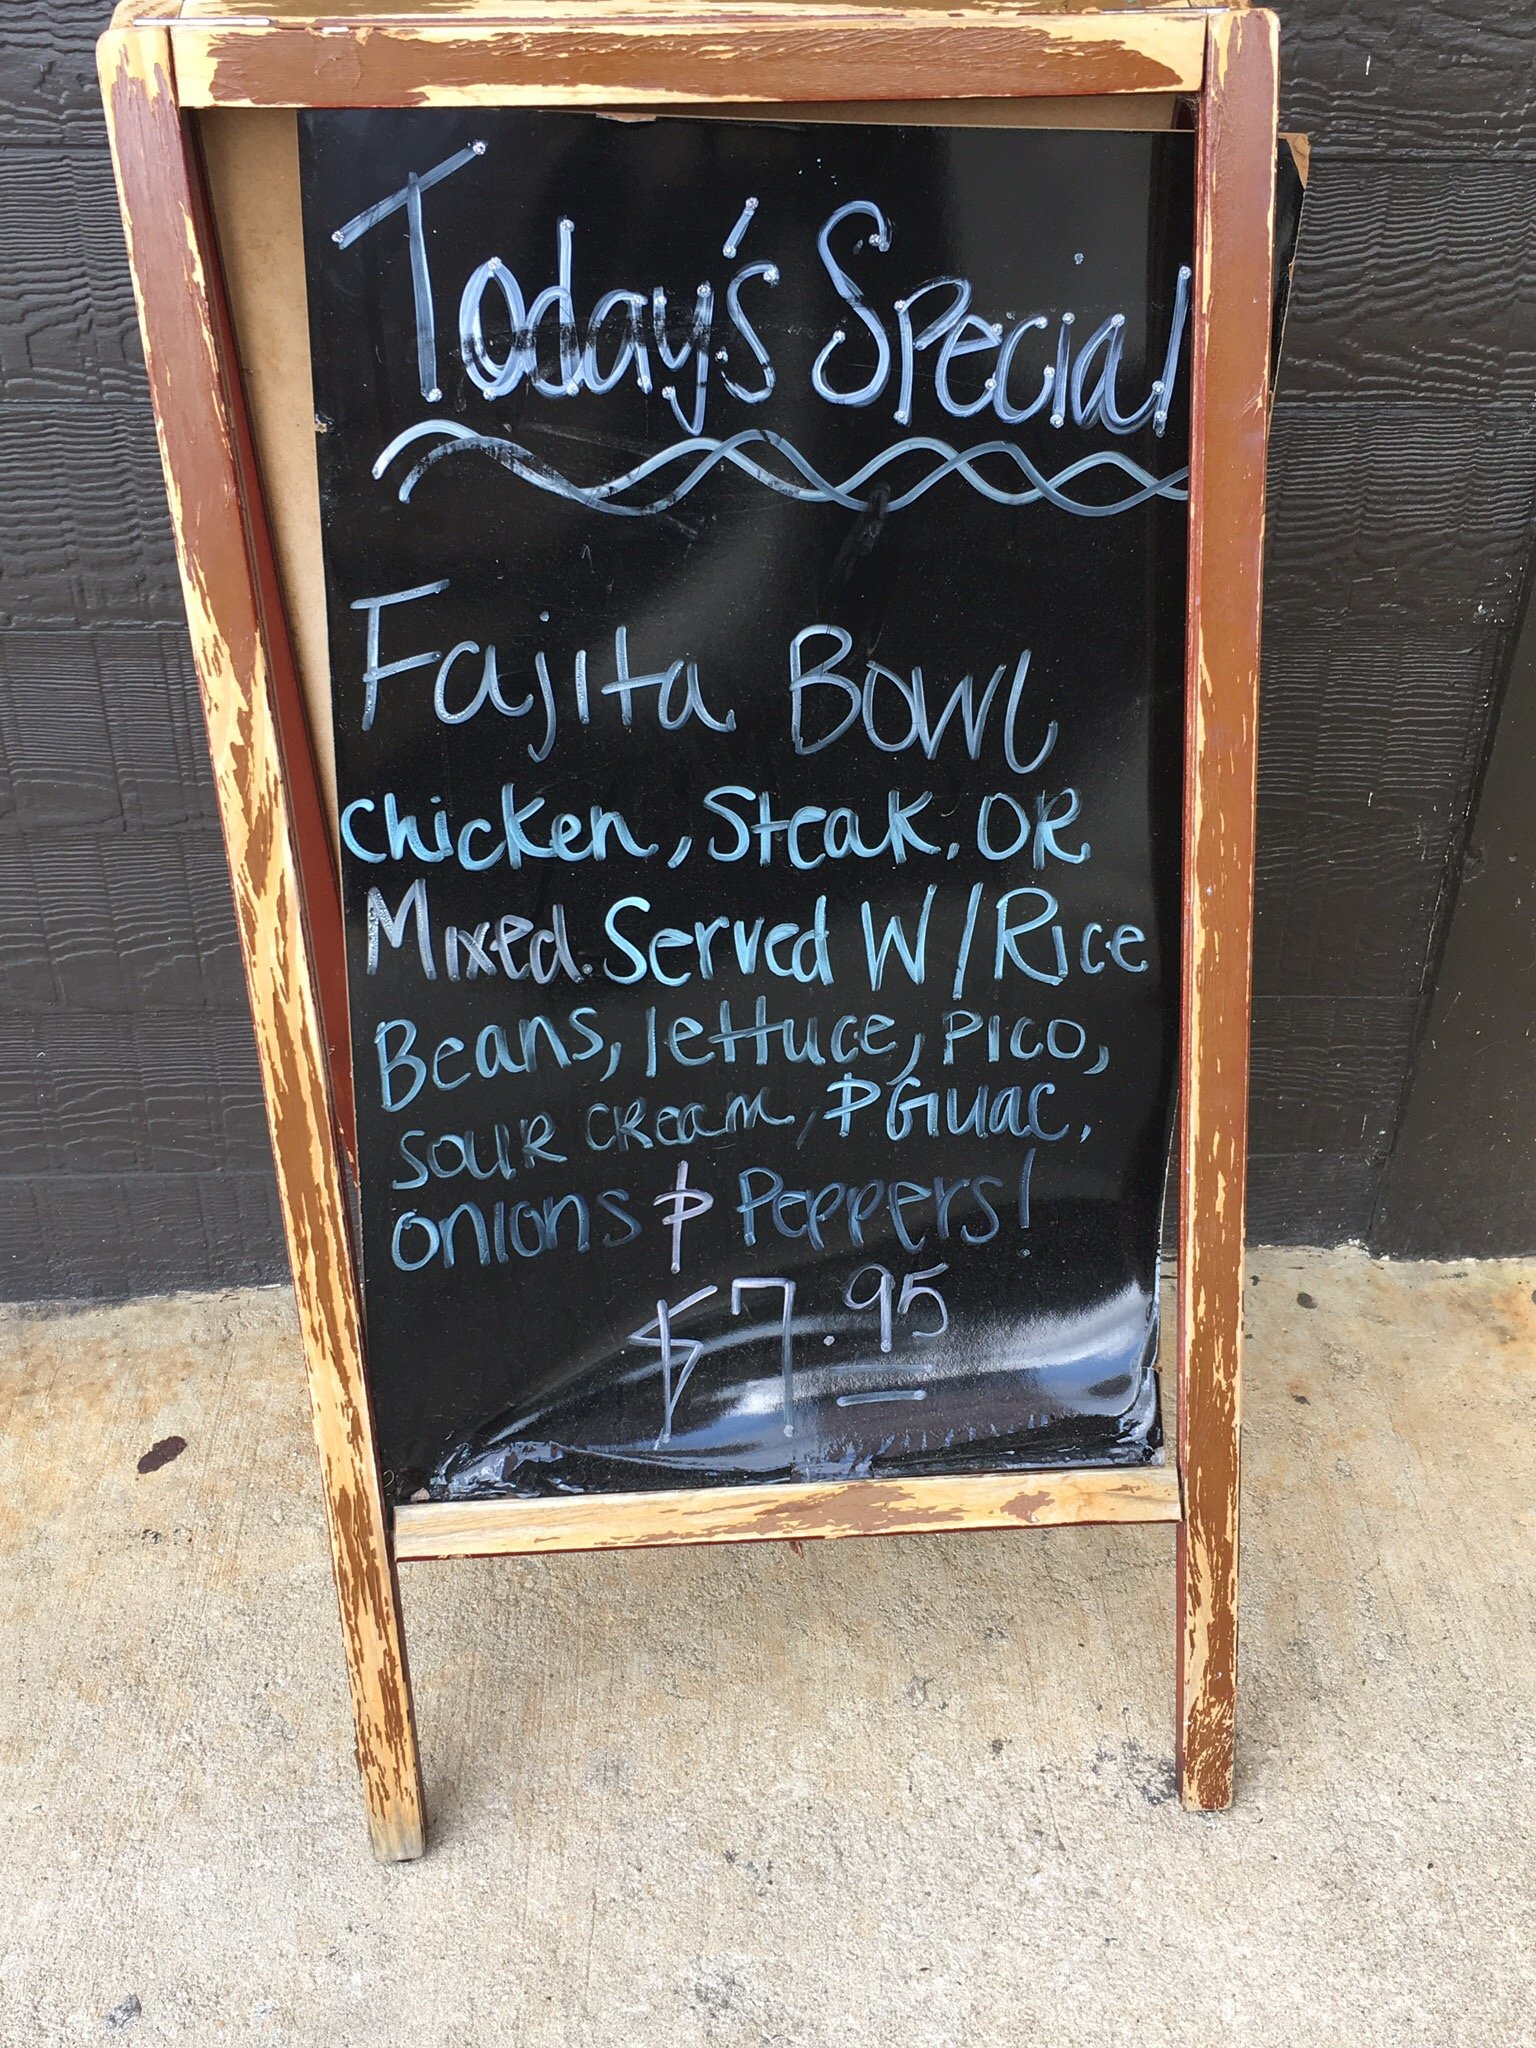 Today's Special
Fajita Bowl
Chicken, Steak, OR
Mixed. Served W/Rice
Beans, lettuce, Pico,
SOUR CREAM, & GUAC,
Onions & Peppers!
$7.95